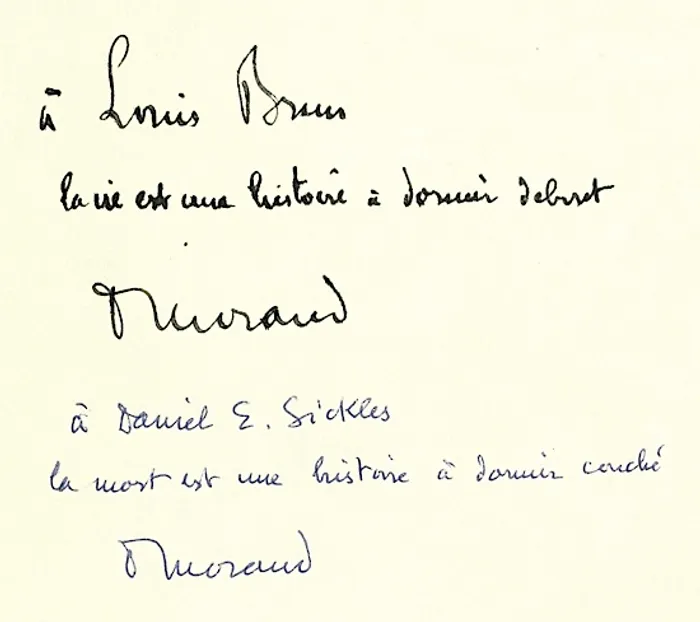 à Louis Brun
la vie est une histoire à dormir debout
Morand
à Daniel E. Sickles
la mort est une histoire à dormir couché
Morand